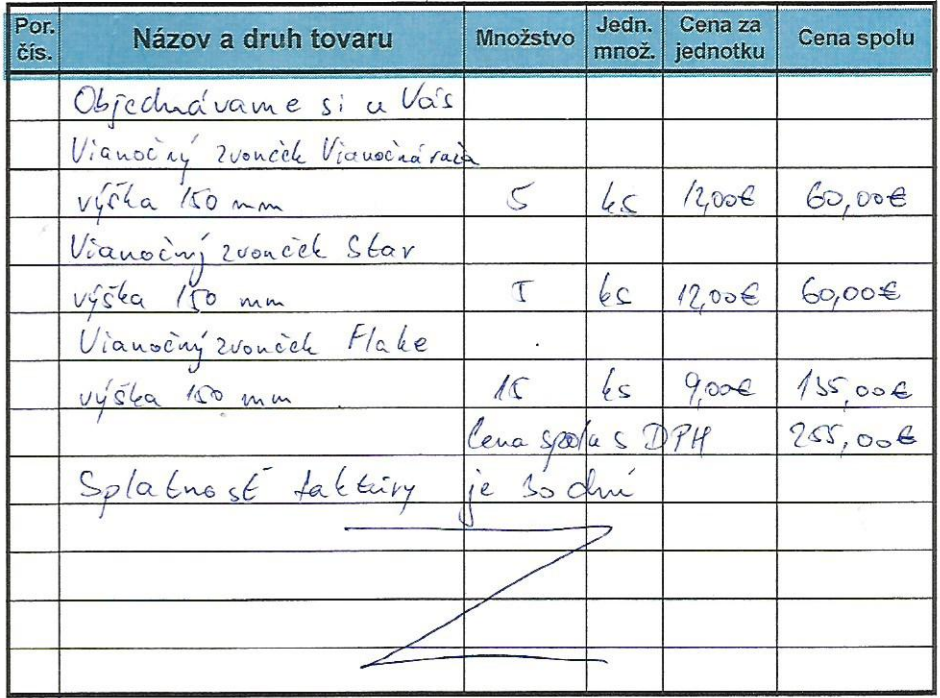 Por. čís. Názov a druh tovaru Množstvo Jedn. množ. Cena za jednotku Cena spolu
Objednávame si u Vás
Vianočný zvonček Vianočná
výška 150 mm 5 ks 12,00€ 60,00€
Vianočný zvonček Star
výška 150 mm 5 ks 12,00€ 60,00€
Vianočný zvonček Flake
výška 150 mm 15 ks 9,00€ 135,00€
Cena spolu s DPH 255,00€
Splatnosť faktúry je 30 dní